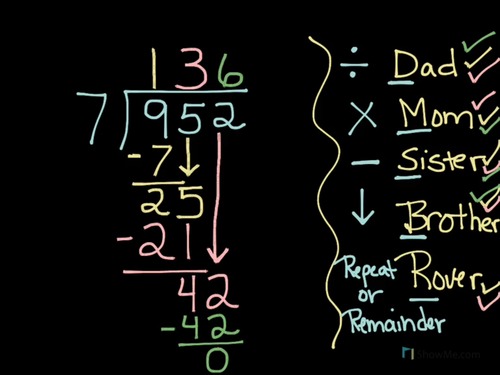 136
7)952
-7
25
-21
42
-42
0
÷ Dad
X Mom
- Sister
↓ Brother
Repeat or Remainder Rover
ShowMe.com